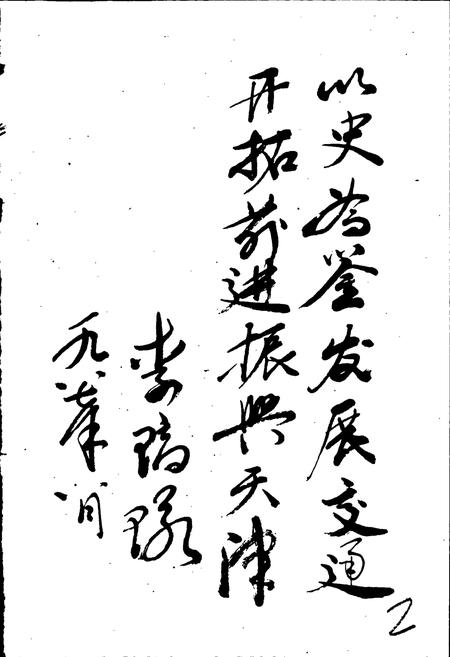 以史为鉴发展交通
开拓前进振兴天津
李瑞环
一九八七年八月
2